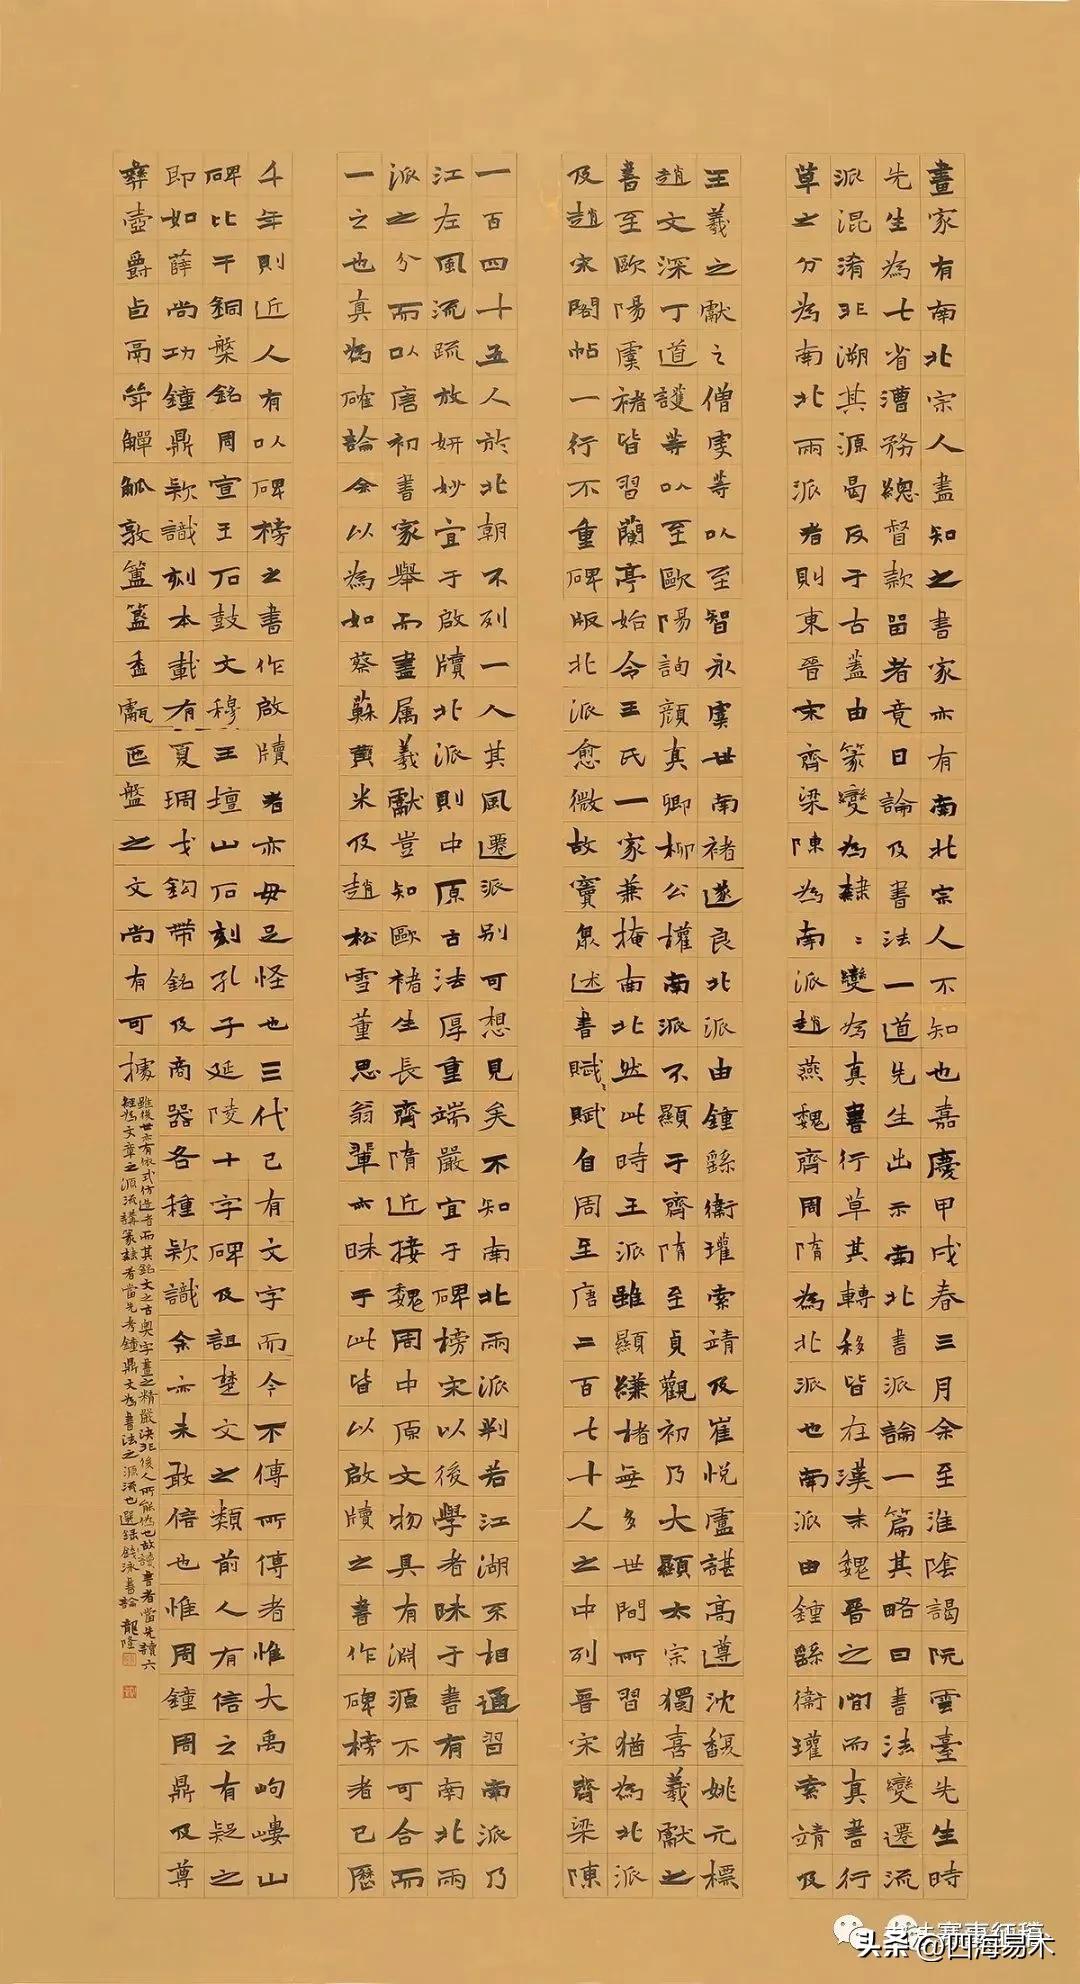 畫家有南北宗人盡知之書家亦有南北宗人不知也嘉慶甲戌春三月余至淮陰謁阮雲臺先生時
先生為七省漕務總督款留者竟日論及書法一道先生出示南北書派論一篇其略曰書法變遷流
派混淆非溯其源曷反于古蓋由篆變為隸：變為真書行草其轉移皆在漢末魏晉之間而真書行
草之分為南北兩派者則東晉宋齊梁陳為南派趙燕魏齊周隋為北派也南派由鍾繇衛瓘索靖及
王羲之獻之僧虔等以至智永虞世南褚遂良北派由鍾繇衛瓘索靖及崔悅盧諶高遵沈馥姚元標
趙文深丁道護等以至歐陽詢顏真卿柳公權南派不顯于齊隋至貞觀初乃大顯太宗獨喜羲獻之
書至歐陽虞褚皆習蘭亭始令王氏一家兼掩南北然此時王派雖顯縑楮無多世間所習猶為北派
及趙宋閣帖一行不重碑版北派愈微故竇臮述書賦賦自周至唐二百七十人之中列晉宋齊梁陳
一百四十五人於北朝不列一人其風遷派別可想見矣不知南北兩派判若江湖不相通習南派乃
江左風流疏放妍妙宜于啟牘北派則中原古法厚重端嚴宜于碑榜宋以後學者昧于書有南北兩
派之分而以唐初書家舉而盡属羲獻豈知歐褚生長齊隋近接魏周中原文物具有淵源不可合而
一之也真為確論余以為如蔡蘇黃米及趙松雪董思翁輩亦昧于此皆以啟牘之書作碑榜者已歷
千年則近人有以碑榜之書作啟牘者亦毋足怪也三代已有文字而今不傳所傳者惟大禹岣嶁山
碑比干銅槃銘周宣王石鼓文穆王壇山石刻孔子延陵十字碑及詛楚文之類前人有信之有疑之
即如薛尚功鐘鼎款識刻本載有夏琱戈鈎帶銘及商器各種款識余亦未敢信也惟周鐘周鼎及尊
彝壺爵卣鬲斝觶觚敦簠簋盉甗匜盤之文尚有可據
雖後世亦有依式仿造者而其銘文之古奧字畫之精嚴決非後人所能偽也故讀書者當先讀六
經為文章之源流講篆隸者當先考鐘鼎文為書法之源流也選錄錢泳書論 龍隆
法赛事征稿
头条 @四海易木